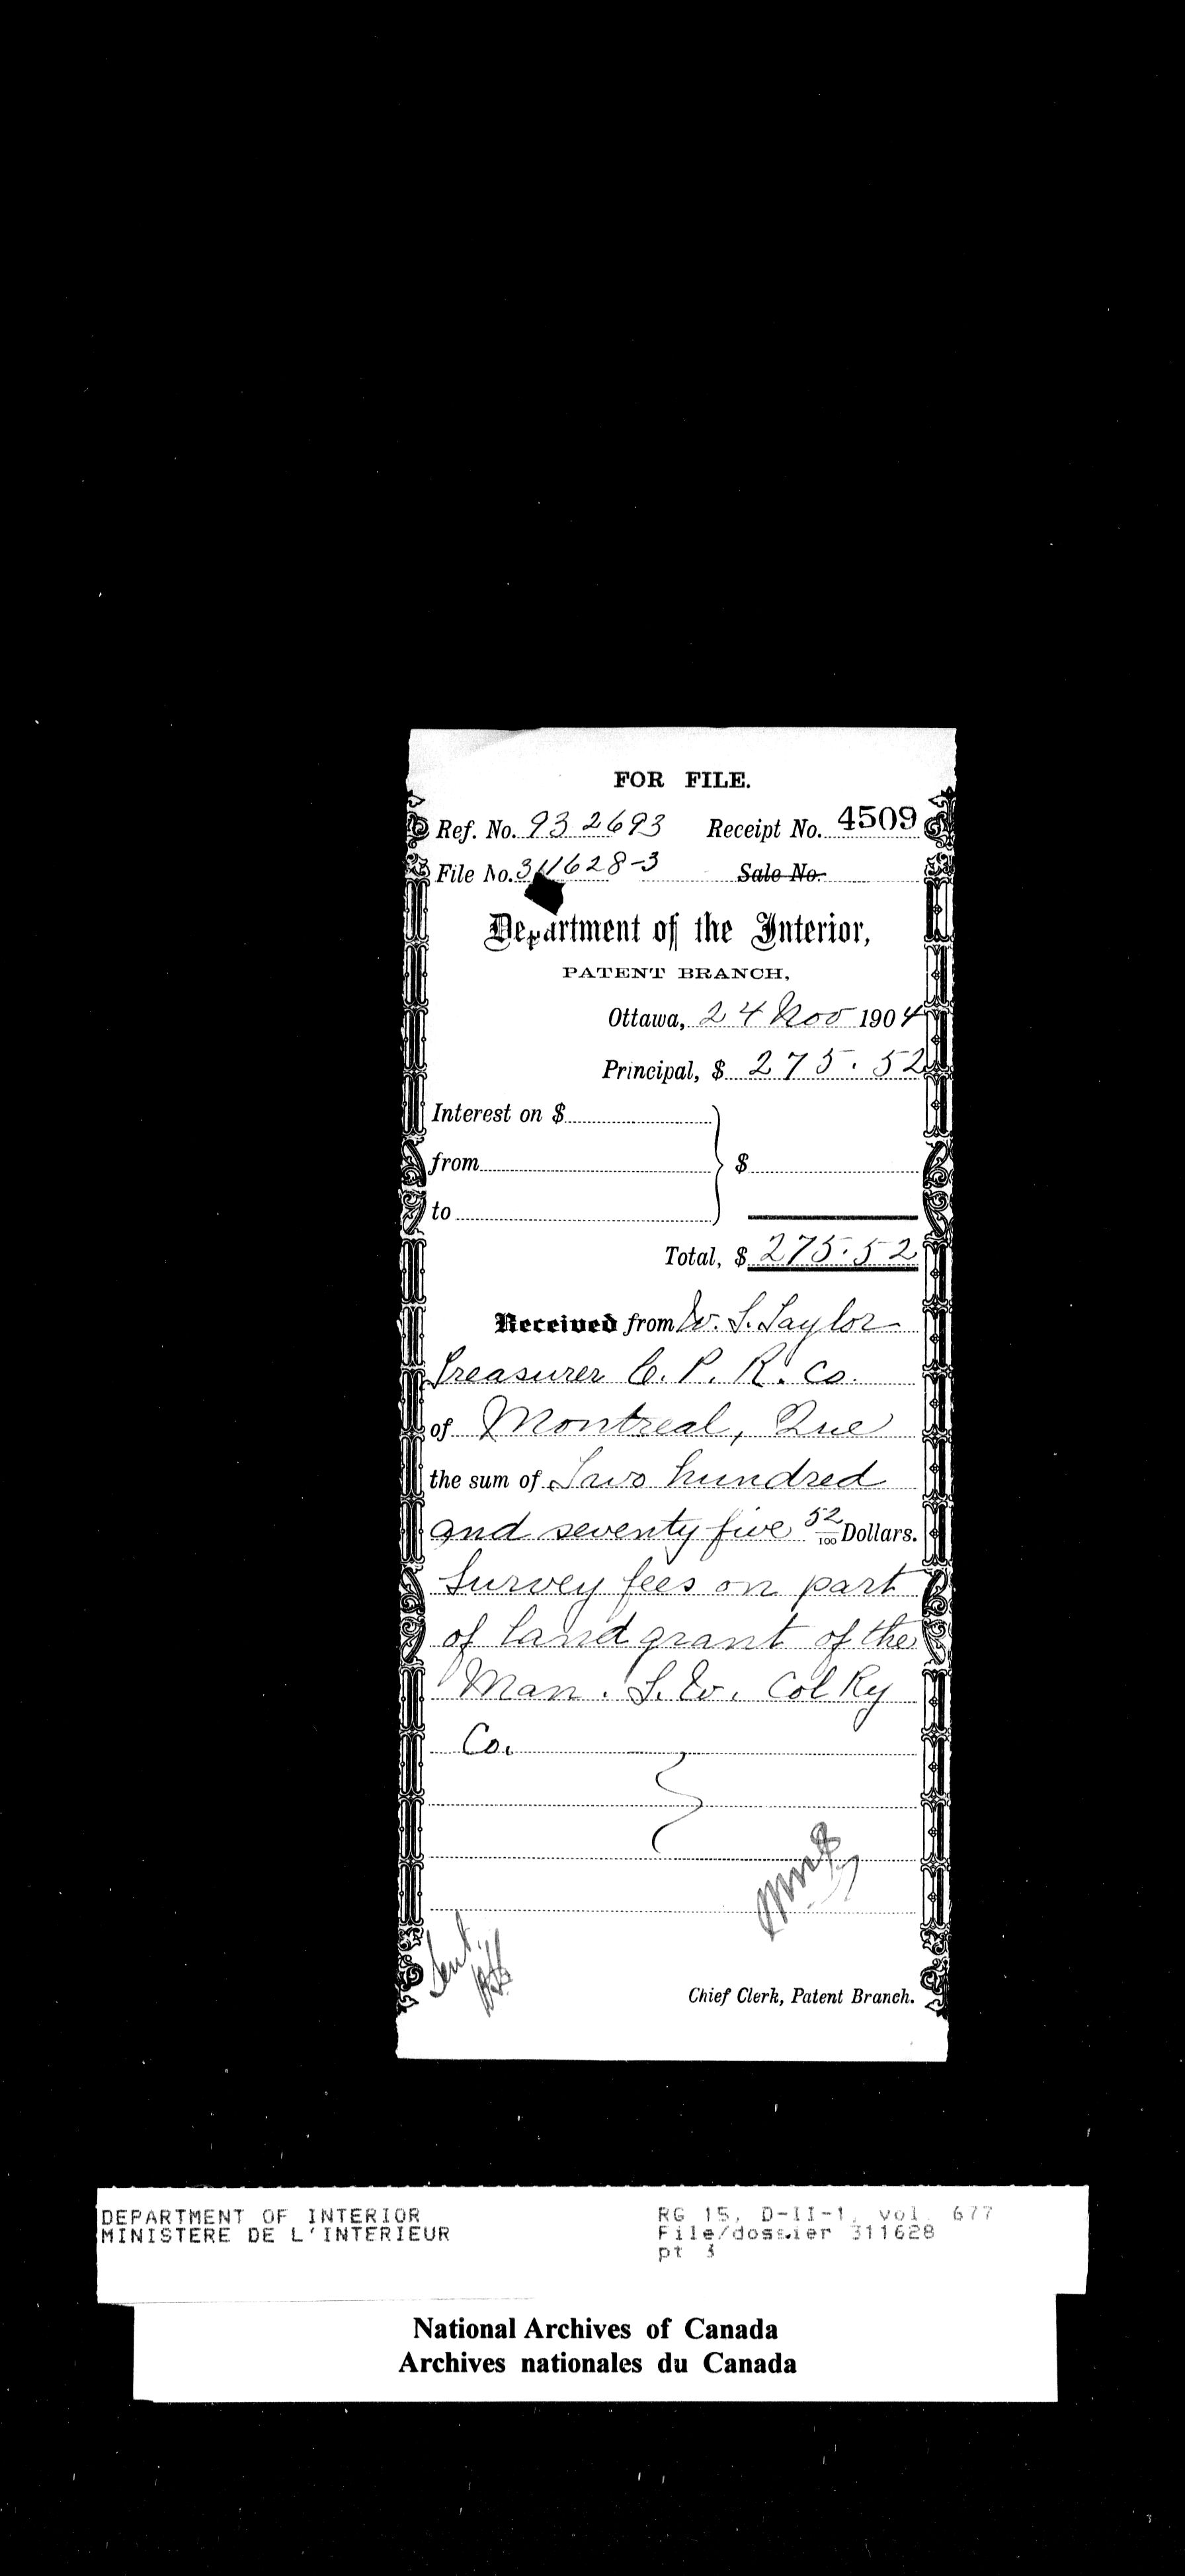 FOR FILE.
Ref. No. 932693 Receipt No. 4509
File No. 311628-3 Sale No.
Department of the Interior,
PATENT BRANCH,
Ottawa, 24 Nov 1904
Principal, $ 275.52
Interest on $
from $
to
Total, $ 275.52
Received from W. S. Taylor
Treasurer C. P. R. Co.
of Montreal, Que
the sum of Two hundred
and seventy five 52/100 Dollars.
Survey fees on part
of land grant of the
Man. S. W. Col Ry
Co.
Sent.
Chief Clerk, Patent Branch.
DEPARTMENT OF INTERIOR RG 15, D-II-1, vol. 677
MINISTERE DE L'INTERIEUR File/dossier 311628
pt 3
National Archives of Canada
Archives nationales du Canada